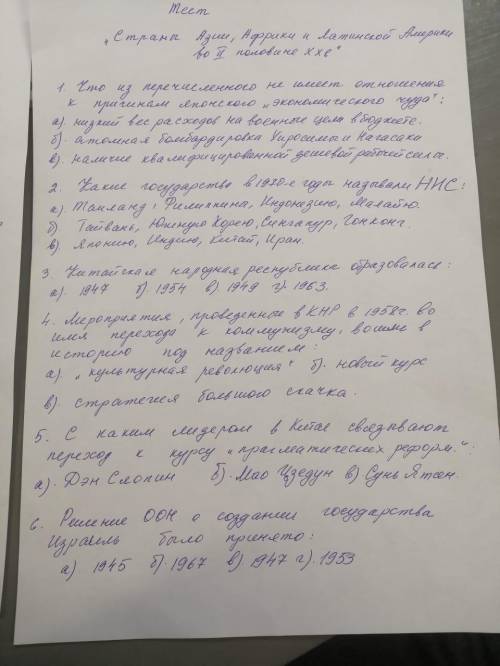 Тест
"Страны Азии, Африки и Латинской Америки
во II половине XXв"
1. Что из перечисленного не имеет отношения
к причинам японского "экономического чуда":
а). низкий вес расходов на военные цели в бюджете.
б). атомная бомбардировка Хиросимы и Нагасаки
в). наличие квалифицированной дешевой рабочей силы.
2. Какие государства в 1970-е годы называли НИС:
а). Таиланд, Филиппины, Индонезию, Малайю.
б). Тайвань, Южную Корею, Сингапур, Гонконг.
в). Японию, Индию, Китай, Иран.
3. Китайская народная республика образовалась:
а). 1947 б). 1954 в) 1949 г). 1963.
4. Мероприятия, проведенные в КНР в 1958г. во
имя перехода к коммунизму, вошли в
историю под названием:
а). "культурная революция" б). новый курс
в). стратегия большого скачка.
5. С каким лидером в Китае связывают
переход к курсу "прагматических реформ.":
а). Дэн Сяопин б). Мао Цзедун в) Сунь Ятсен.
6. Решение ООН о создании государства
Израиль было принято:
а) 1945 б). 1967 в). 1947 г). 1953